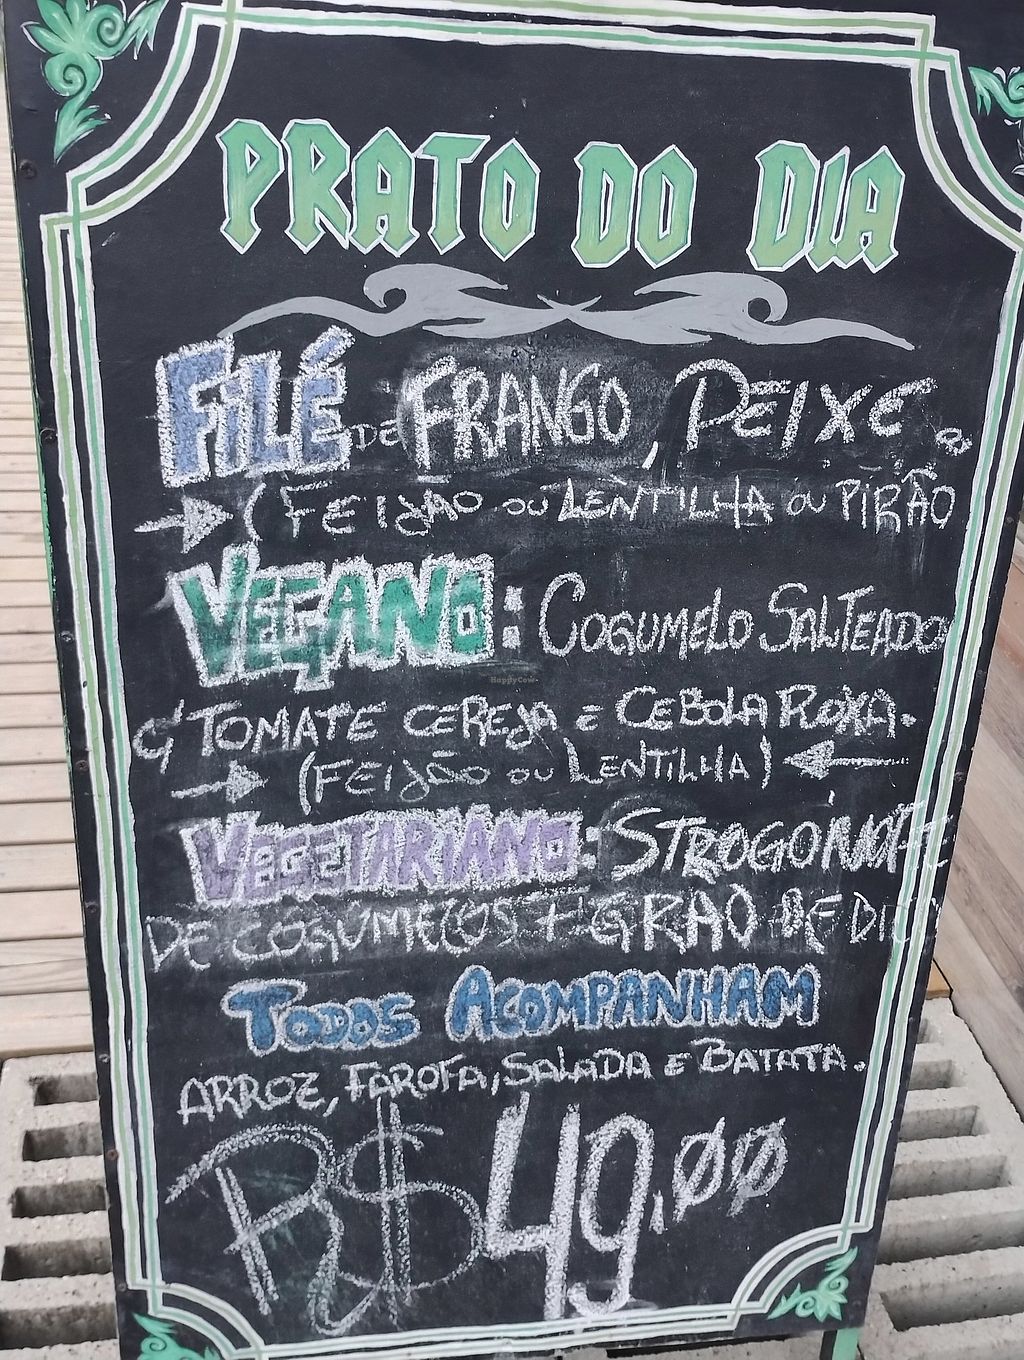 PRATO DO DIA
FILÉ DE FRANGO, PEIXE
(FEIJÃO OU LENTILHA OU PIRÃO
VEGANO: COGUMELO SALTEADO
C/ TOMATE CEREJA E CEBOLA ROXA.
(FEIJÃO OU LENTILHA)
VEGETARIANO: STROGONOFFE
DE COGUMELOS + GRÃO DE BICO
TODOS ACOMPANHAM
ARROZ, FAROFA, SALADA E BATATA.
R$ 49,00
HappyCow